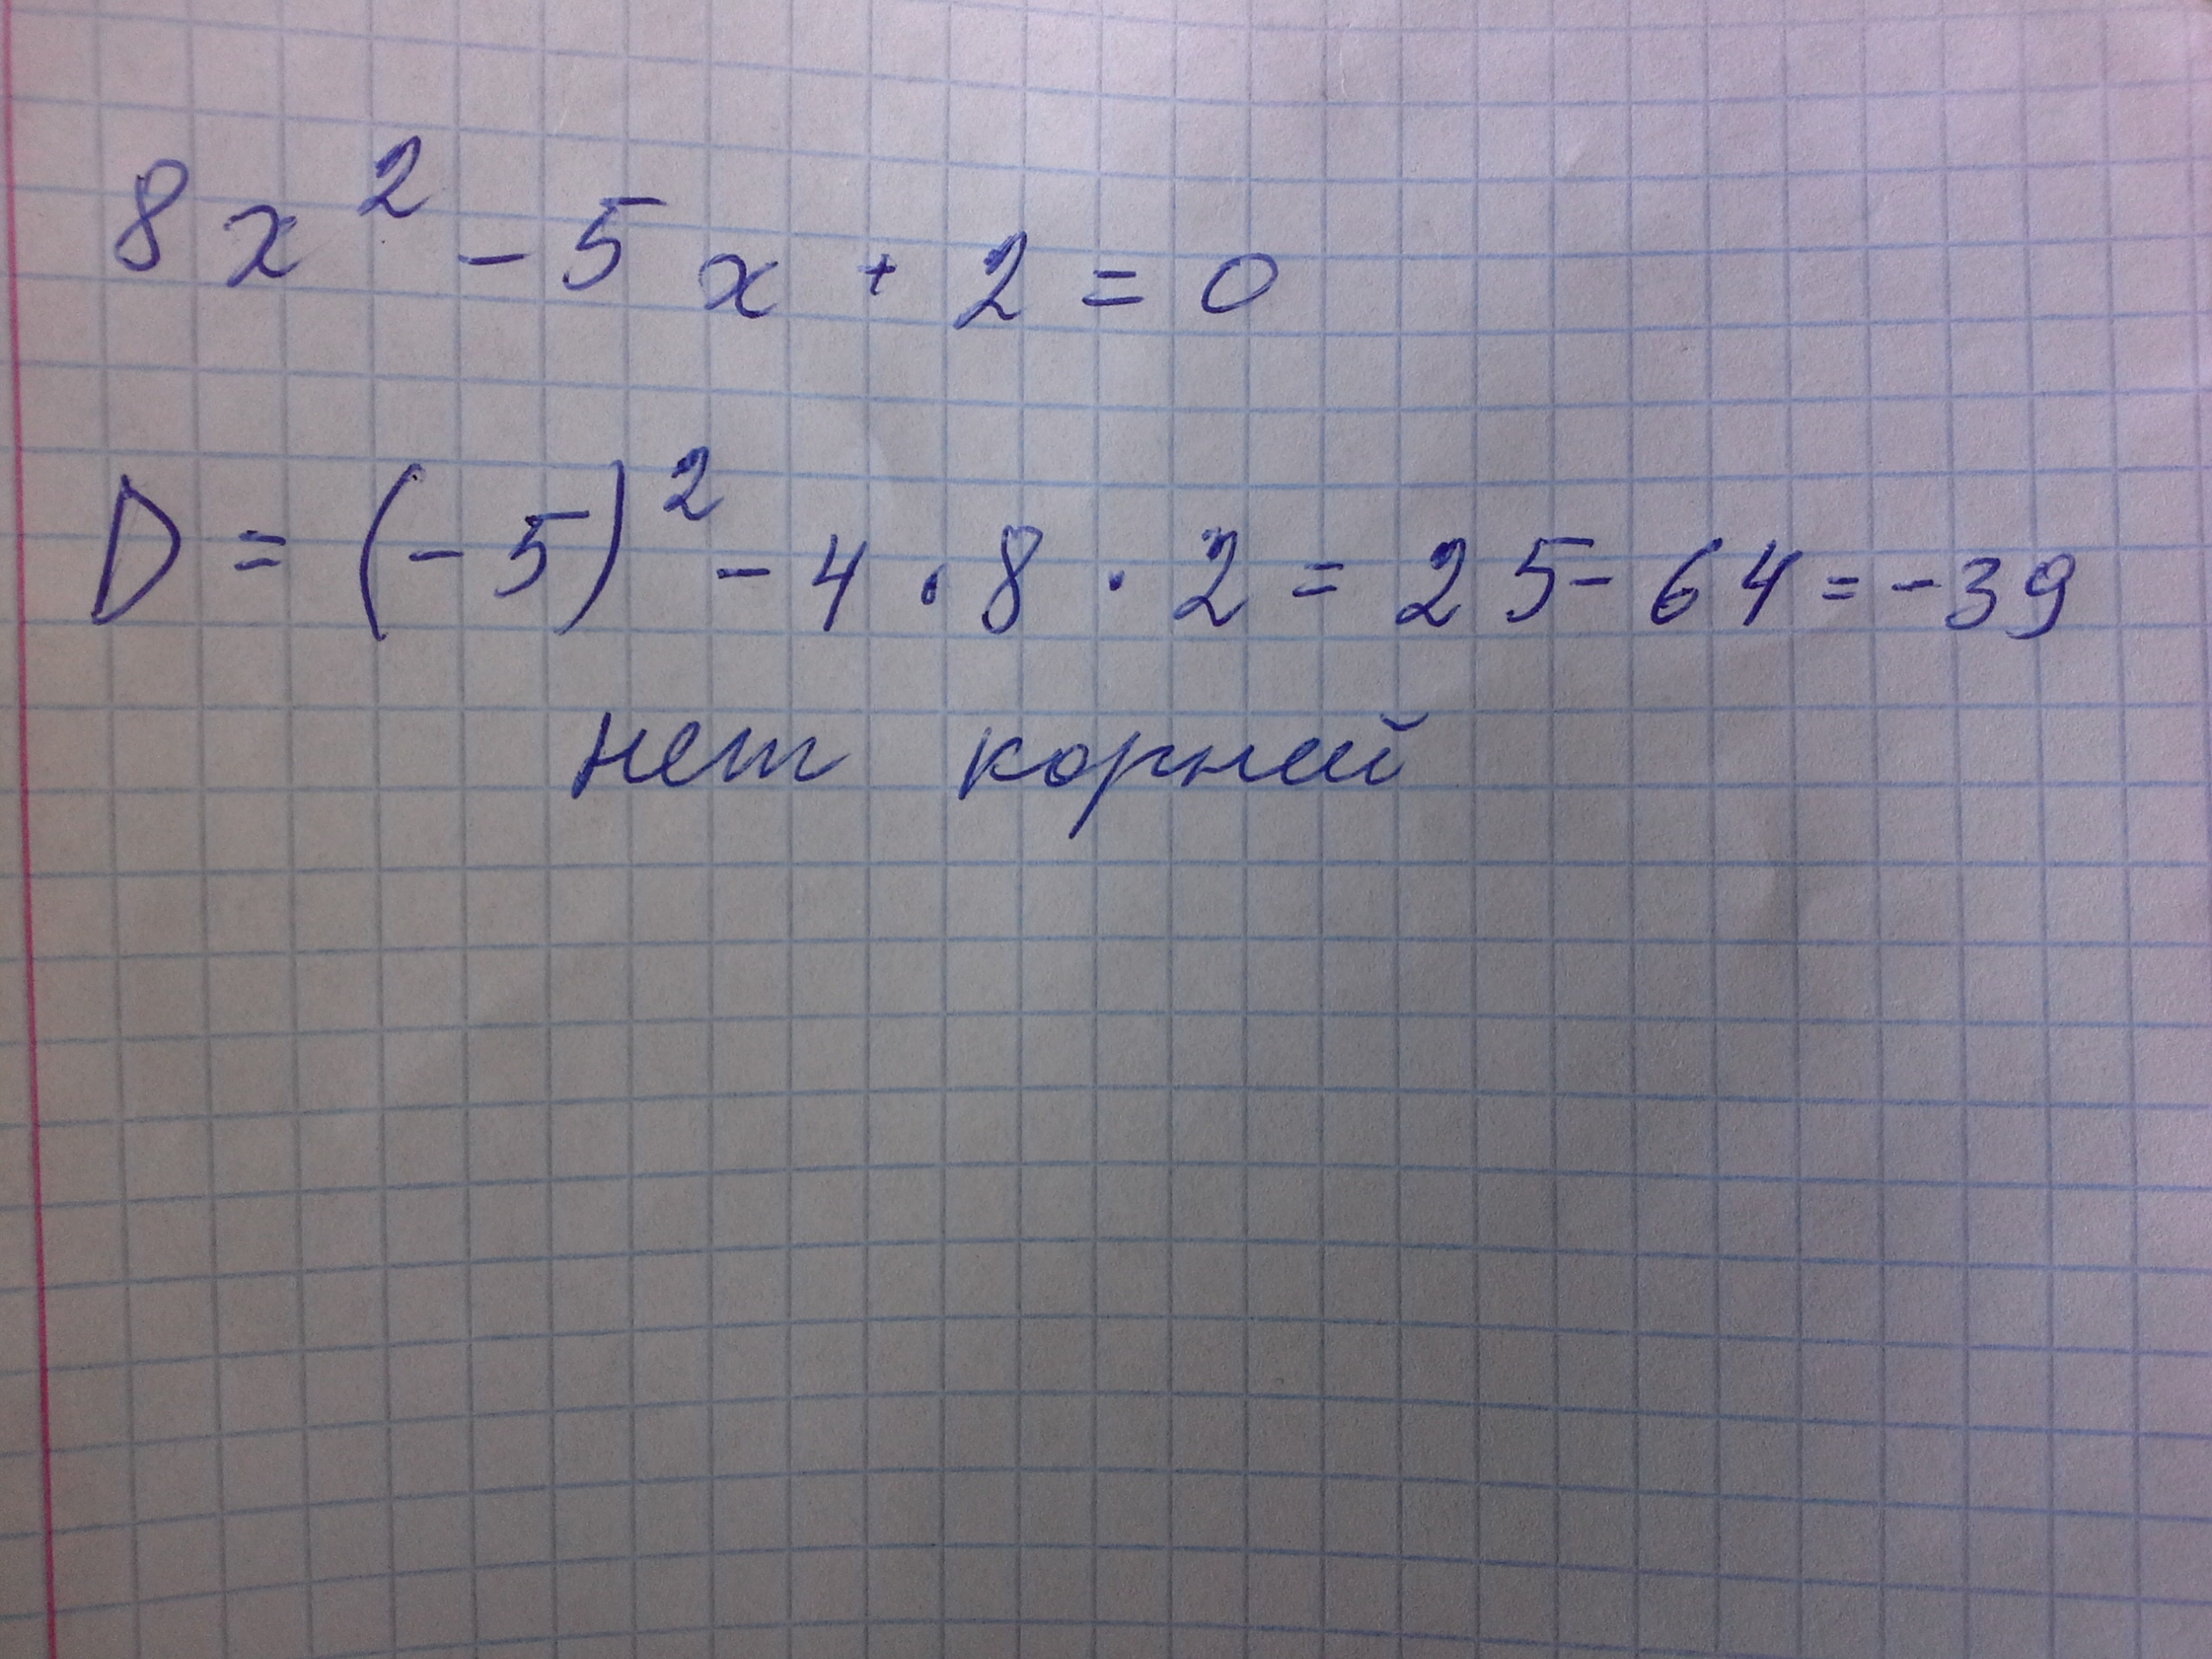 8x² - 5x + 2 = 0
D = (-5)² - 4 · 8 · 2 = 25 - 64 = -39
нет корней